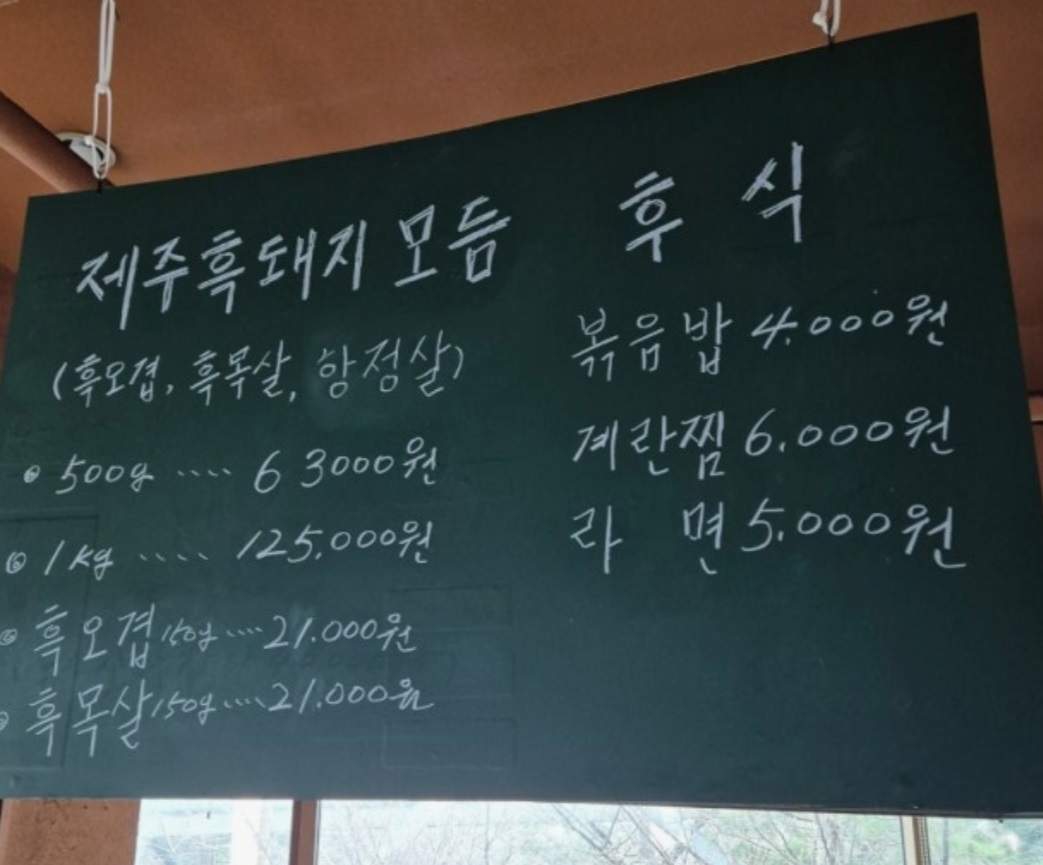 제주흑돼지모듬
(흑오겹, 흑목살, 항정살)
500g .... 63000원
1kg .... 125.000원
흑오겹 150g .... 21.000원
흑목살 150g .... 21.000원
후 식
볶음밥 4.000원
계란찜 6.000원
라 면 5.000원